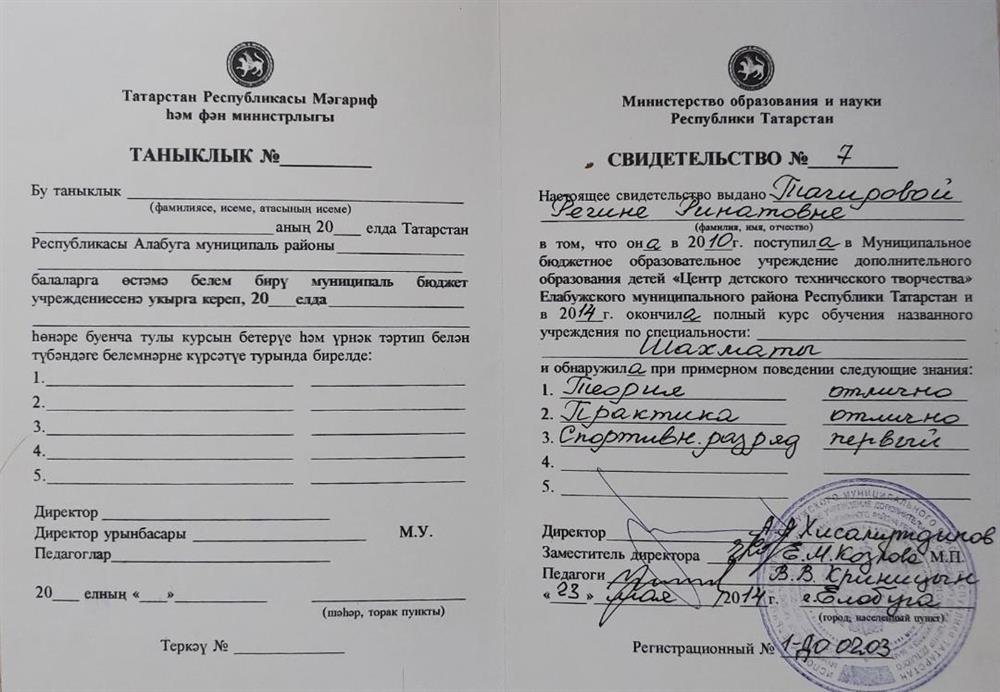 Татарстан Республикасы Мәгариф
һәм фән министрлыгы
ТАНЫКЛЫК №_________
Бу таныклык ____________________
(фамилиясе, исеме, атасының исеме)
____________________ аның 20___ елда Татарстан
Республикасы Алабуга муниципаль районы____________
балаларга өстәмә белем бирү муниципаль бюджет
учреждениесенә укырга кереп, 20___ елда____________
____________________
һөнәре буенча тулы курсын бетерүе һәм үрнәк тәртип белән
түбәндәге белемнәрне күрсәтүе турында бирелде:
1.____________________ ____________
2.____________________ ____________
3.____________________ ____________
4.____________________ ____________
5.____________________ ____________
Директор ____________________
Директор урынбасары ____________ М.У.
Педагоглар____________________
20___ елның «___»____________ ____________
(шәһәр, торак пункты)
Теркәү № ____________
Министерство образования и науки
Республики Татарстан
СВИДЕТЕЛЬСТВО № 7
Настоящее свидетельство выдано Тагировой
Регине Ринатовне
(фамилия, имя, отчество)
в том, что она в 2010г. поступила в Муниципальное
бюджетное образовательное учреждение дополнительного
образования детей «Центр детского технического творчества»
Елабужского муниципального района Республики Татарстан и
в 2014г. окончила полный курс обучения названного
учреждения по специальности:
Шахматы
и обнаружила при примерном поведении следующие знания:
1. Теория отлично
2. Практика отлично
3. Спортивн. разряд первый
4.
5.
Директор А.А. Хисамутдинов
Заместитель директора Е.М. Козлова М.П.
Педагоги В.В. Криницын
«23» мая 2014 г. г. Елабуга
(город, населенный пункт)
Регистрационный № 1-ДО 0203